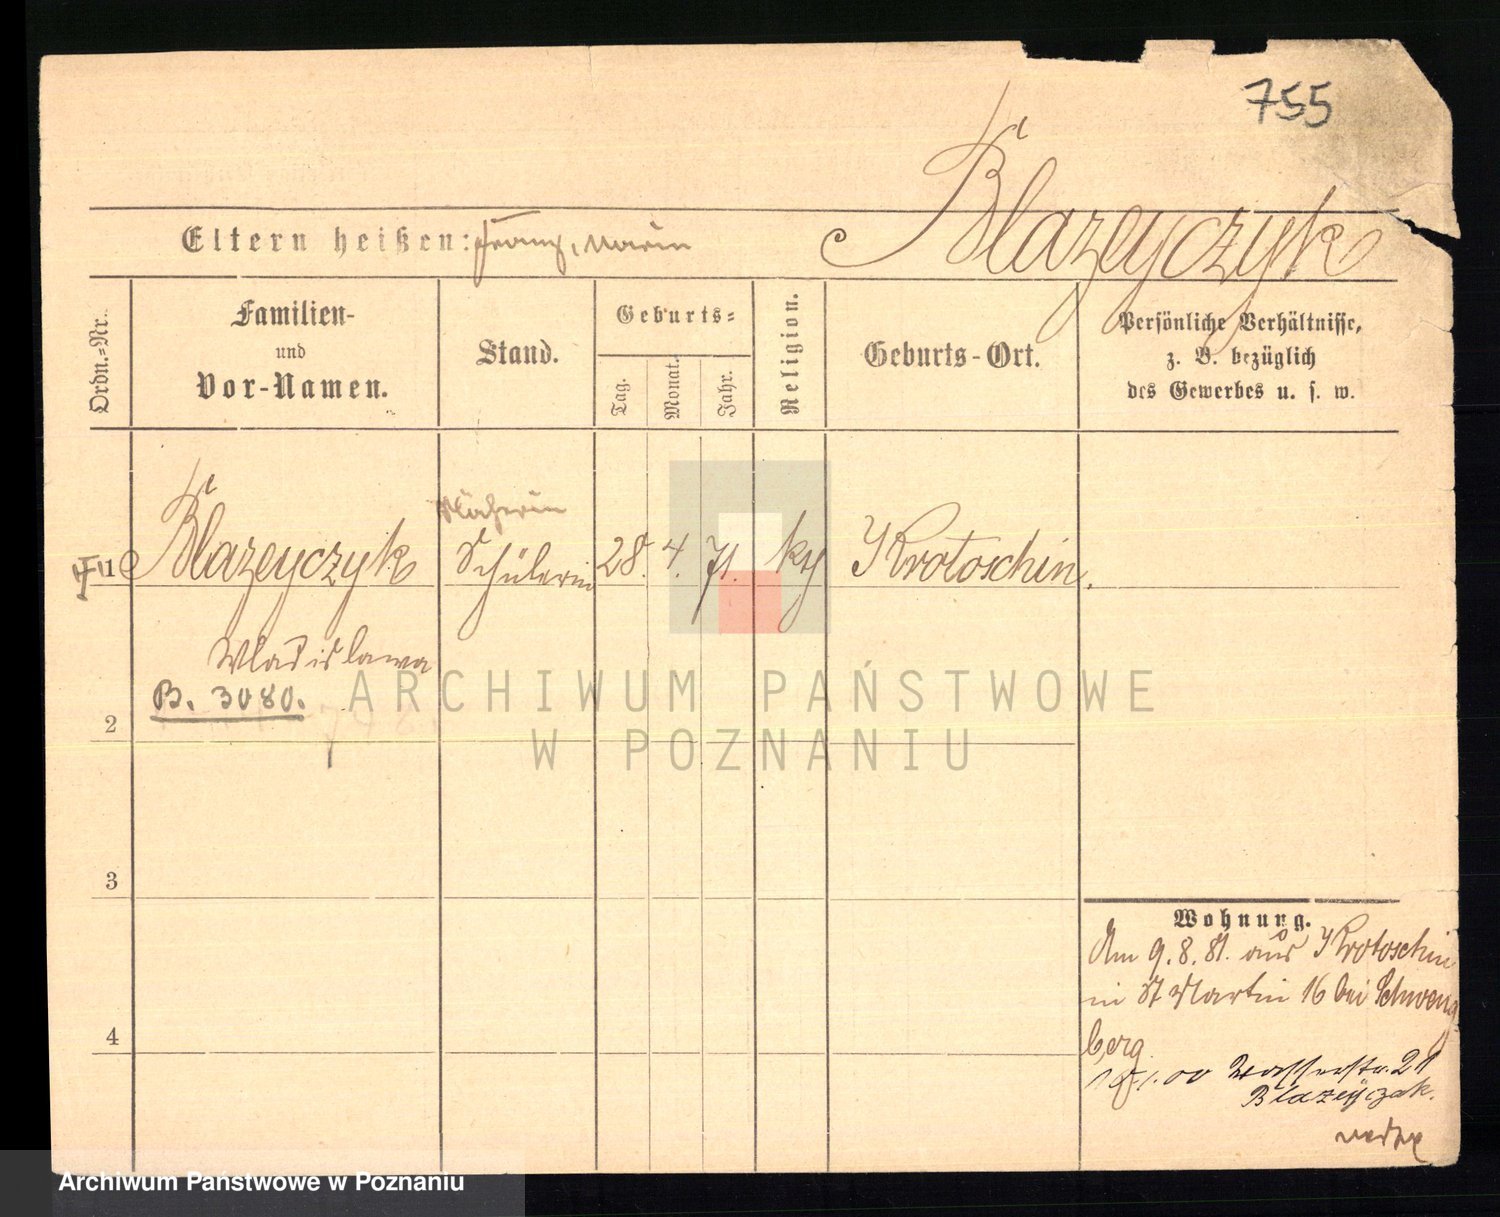 755
Blazeyczyk
Eltern heißen: Franz, Marie
Ordn.-Nr.
Familien-
und
Vor-Namen.
Stand.
Geburts-
Tag.
Monat.
Jahr.
Religion.
Geburts-Ort.
Persönliche Verhältnisse,
z. B. bezüglich
des Gewerbes u. s. w.
Näherin
1 Blazeyczyk Schülerin 28. 4. 71. kth Krotoschin.
Wladislawa
B. 3080.
2
3
4
Wohnung.
Am 9.8.81. aus Krotoschin
in St Martin 16 bei Schweng
berg.
1.00 Wasserstr. 21
Blazeyczak.
ARCHIWUM PAŃSTWOWE
W POZNANIU
Archiwum Państwowe w Poznaniu